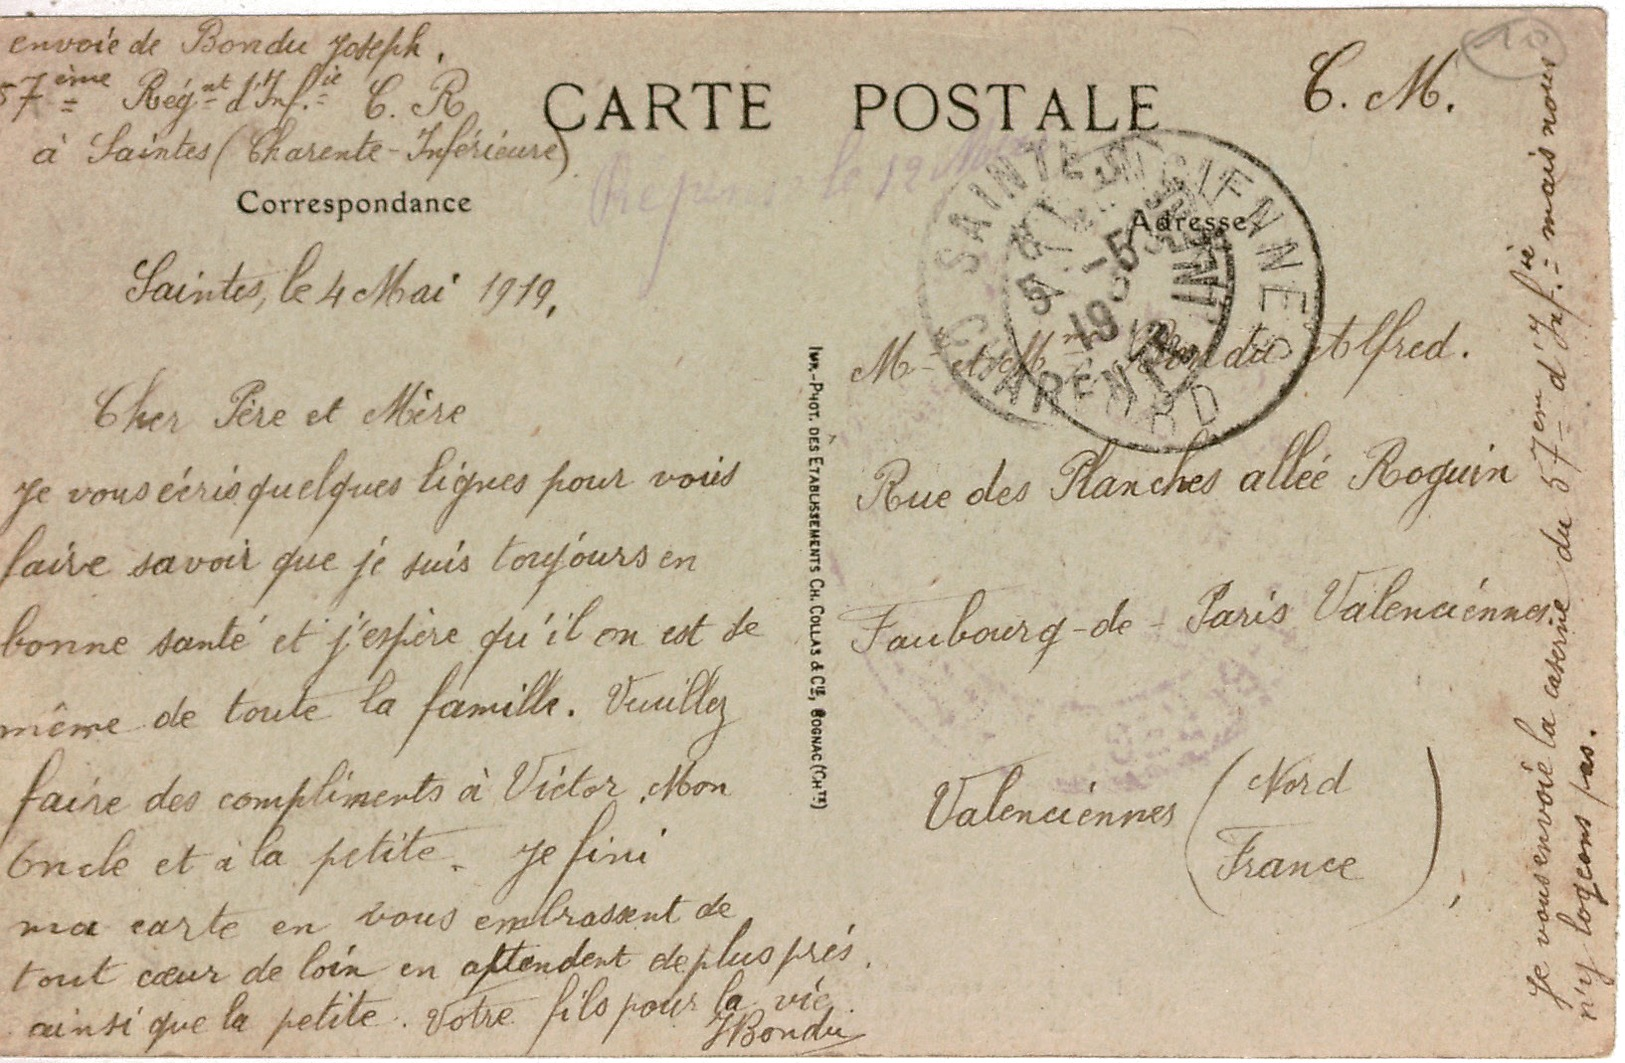 envoie de Bondu Joseph.
57ème Régnt d'Infie C. R
à Saintes (Charente-Inférieure)
CARTE POSTALE
C. M.
10
le 12
Correspondance
Adresse
Saintes, le 4 Mai 1919.
Cher Père et Mère
Je vous écris quelques lignes pour vous
faire savoir que je suis toujours en
bonne santé et j'espère qu'il on est de
même de toute la famille. Veuillez
faire des compliments à Victor, Mon
Oncle et à la petite. Je fini
ma carte en vous embrassent de
tout cœur de loin en attendent de plus prés.
ainsi que la petite. Votre fils pour la vie
JBondu
IMP.-PHOT. DES ETABLISSEMENTS CH. COLLAS & CIE, COGNAC (CHTE)
SAINTES
VALENCIENNES
NORD
Mr et Mme Bondu Alfred.
Rue des Planches allée Roguin
Faubourg-de-Paris Valenciennes
Valenciennes (Nord
France)
Je vous envoie la caserne du 57em d'Infie mais nous
n'y logeons pas.